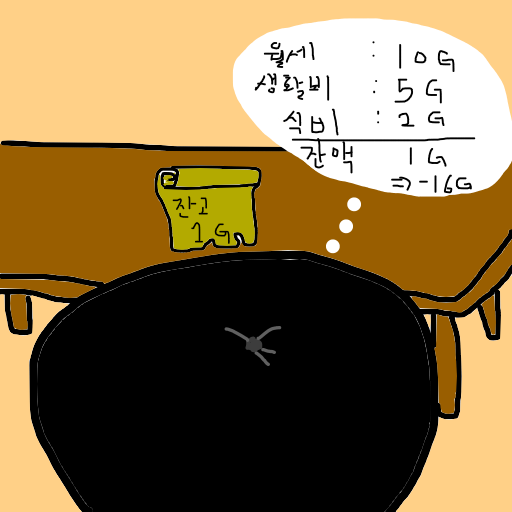 월세 : 10G
생활비 : 5G
식비 : 2G
잔액 1G
⇒ -16G
잔고
1G